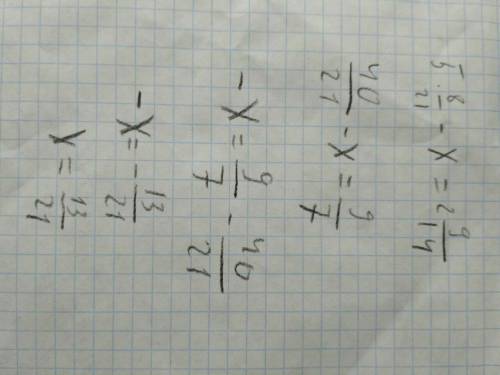 5 · 8/21 - x = 2 9/14
40/21 - x = 9/7
- x = 9/7 - 40/21
- x = - 13/21
x = 13/21